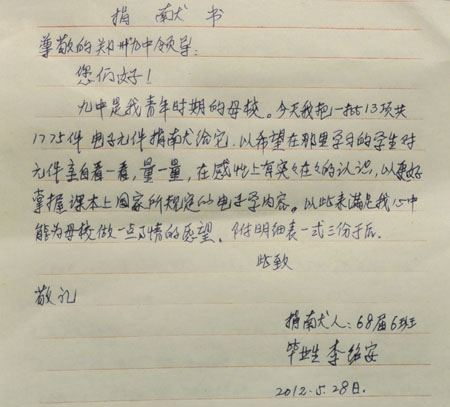 捐 献 书
尊敬的郑州九中领导:
您们好!
九中是我青年时期的母校。今天我把一批13项共
1775件电子元件捐献给它,以希望在那里学习的学生对
元件亲自看一看,量一量,在感性上有实实在在的认识,以更好
掌握课本上国家所规定的电子学内容。以此来满足我心中
能为母校做一点事情的愿望。附明细表一式三份于后.
此致
敬礼
捐献人:68届6班
毕业生 李绍安
2012.5.28日.